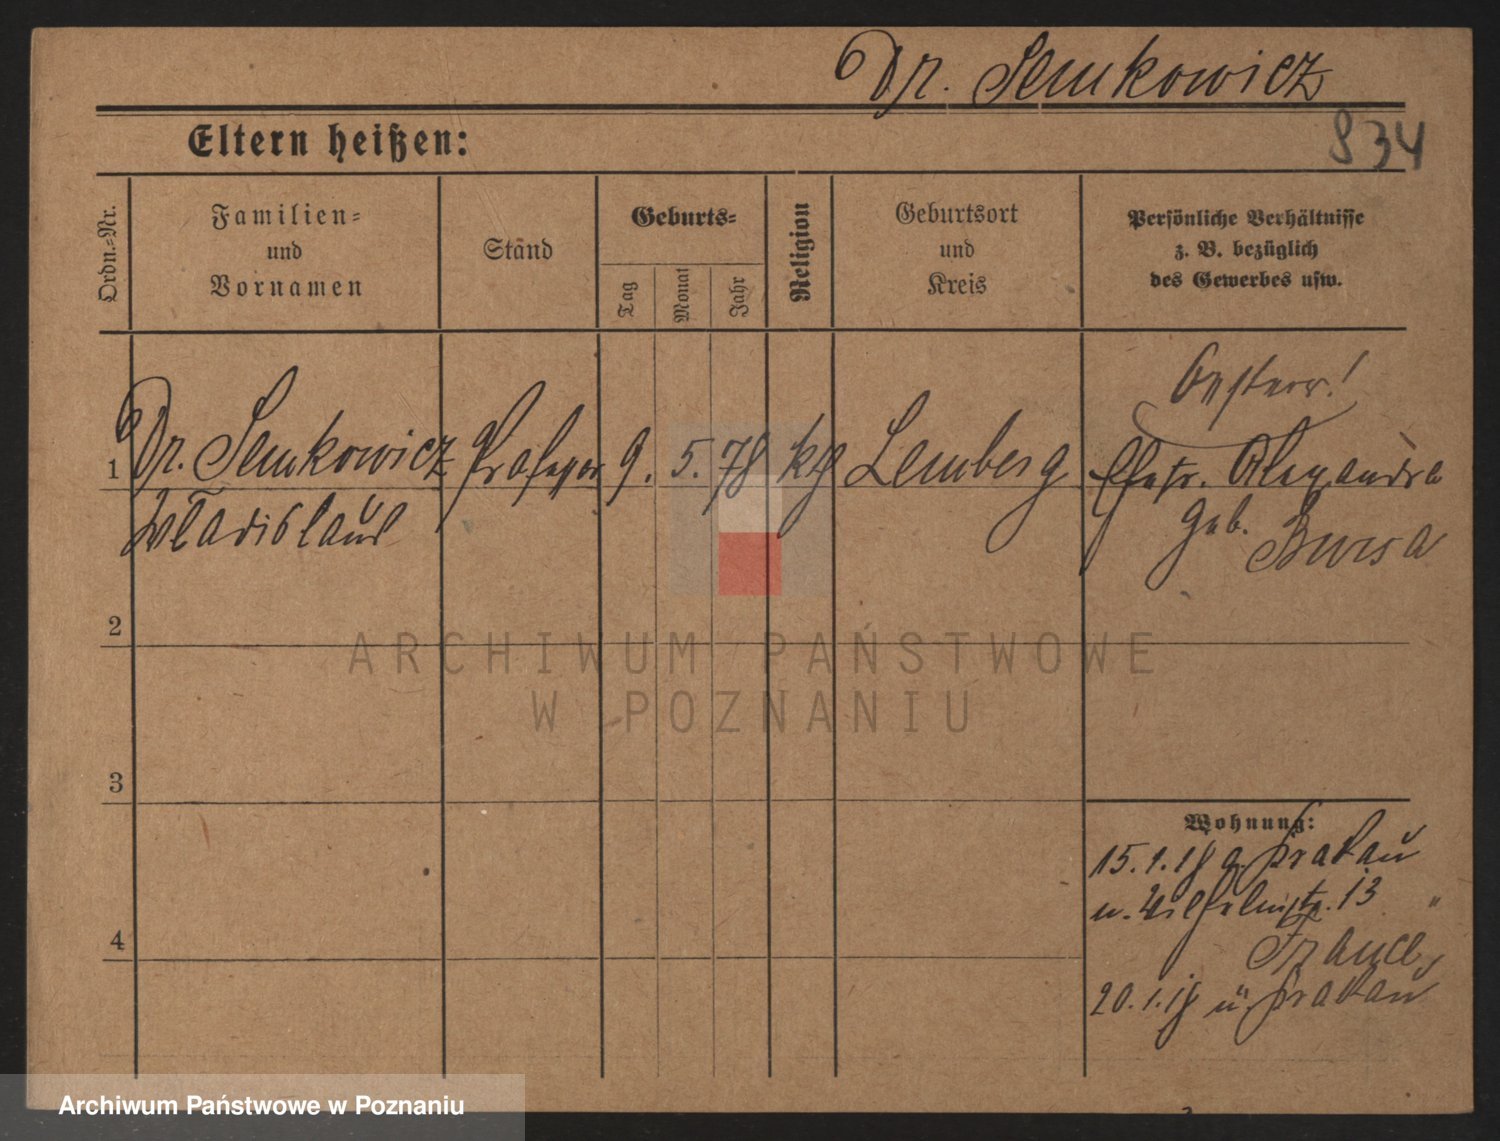 Dr. Semkowicz
834
Eltern heißen:
Ordn.-Nr.
Familien-
und
Vornamen
Stand
Geburts-
Tag
Monat
Jahr
Religion
Geburtsort
und
Kreis
Persönliche Verhältnisse
z. B. bezüglich
des Gewerbes usw.
Oesterr.!
1 Dr. Semkowicz Professor 9. 5. 78 kth Lemberg Ehefr. Alexandra
Wladislaus geb. Bursa
2
ARCHIWUM PAŃSTWOWE
W POZNANIU
3
Wohnung:
15.1.18 a. Krakau
n. Wilhelmstr. 13
4
20.1.18 ü. Krakau
Archiwum Państwowe w Poznaniu